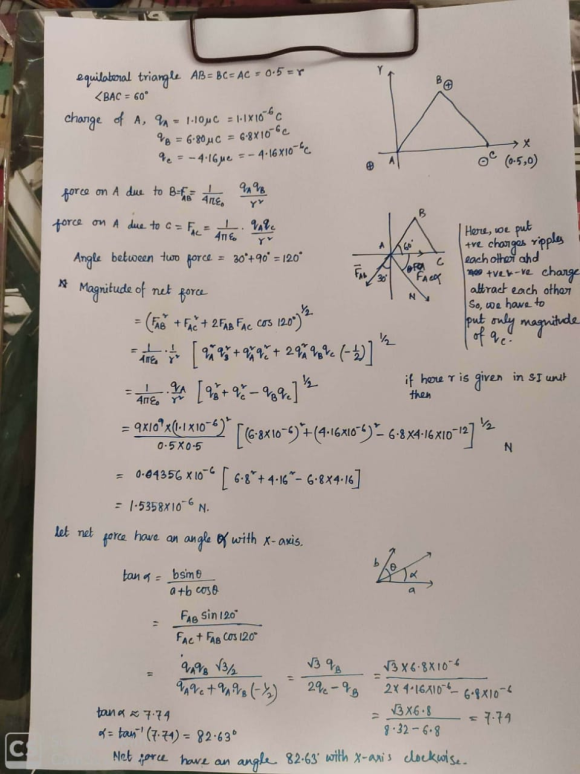 equilateral triangle AB = BC = AC = 0.5 = r
∠BAC = 60°
charge of A, qA = 1.10μC = 1.1×10⁻⁶ C
qB = 6.80μC = 6.8×10⁻⁶ C
qc = -4.16μc = -4.16×10⁻⁶C
Y
B ⊕
A
⊕
X
C
⊖ (0.5,0)
force on A due to B = FAB = 1/4πε₀ qAqB/r²
force on A due to C = FAC = 1/4πε₀ qAqc/r²
Angle between two force = 30°+90° = 120°
B
A
60°
C
FAB
30°
FAC
N
Here, we put
+ve charges ripples
each other and
+ve & -ve charge
attract each other
So, we have to
put only magnitude
of qc.
Magnitude of net force
= (FAB² + FAC² + 2FAB FAC cos 120°)^1/2
= 1/4πε₀ · 1/r² [qA²qB² + qA²qc² + 2qA²qBqc (-1/2)]^1/2
= 1/4πε₀ qA/r² [qB² + qc² - qBqc]^1/2
if here r is given in SI unit
then
= 9×10⁹×(1.1×10⁻⁶)²/0.5×0.5 [(6.8×10⁻⁶)² + (4.16×10⁻⁶)² - 6.8×4.16×10⁻¹²]^1/2 N
= 0.04356 ×10⁻⁶ [6.8² + 4.16² - 6.8×4.16]
= 1.5358×10⁻⁶ N.
let net force have an angle α with x-axis.
tan α = bsinθ/a+b cosθ
b
θ
α
a
= FAB Sin120°/FAC + FAB Cos120°
= qAqB √3/2/qAqc + qAqB (-1/2) = √3 qB/2qc - qB = √3×6.8×10⁻⁶/2×4.16×10⁻⁶ - 6.8×10⁻⁶
= √3×6.8/8.32-6.8 = 7.74
tan α ≈ 7.74
α = tan⁻¹ (7.74) = 82.63°
Net force have an angle 82.63° with x-axis clockwise.
CS